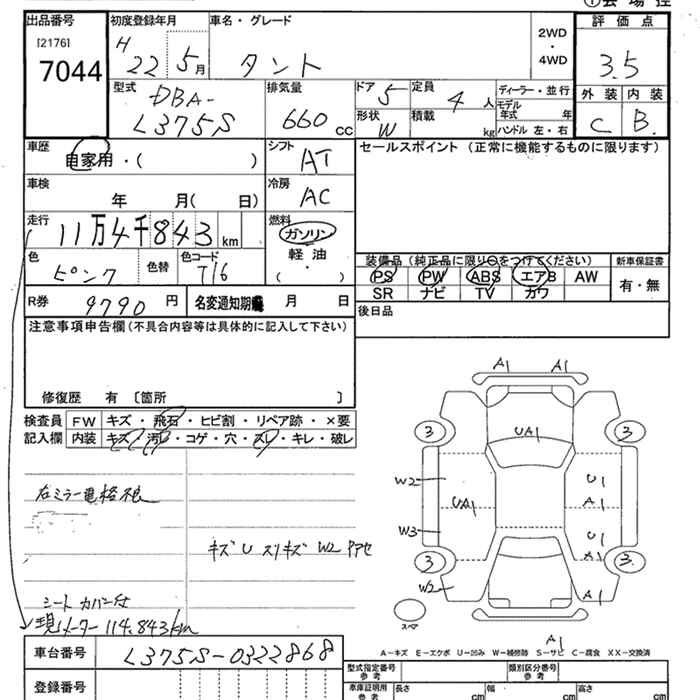 出品番号 [2176] 7044
初度登録年月 H 22 5月
車名・グレード タント
2WD・4WD
評価点 3.5
外装 C 内装 B.
型式 DBA-L375S
排気量 660 cc
ドア 5
形状 W
定員 4 人
積載 kg
ディーラー・並行
モデル年式 年
ハンドル 左・右
車歴 自家用・( )
シフト AT
セールスポイント (正常に機能するものに限ります)
車検 年 月( 日)
冷房 AC
走行 11万4千843 km
燃料 ガソリン 軽油 ( ・ )
色 ピンク 色替 色コード T16
装備品(純正品に限り○をつけてください)
新車保証書 有・無
PS PW ABS エアB AW
SR ナビ TV カワ
R券 9790 円
名変通知期 月 日
後日品
注意事項申告欄(不具合内容等は具体的に記入して下さい)
修復歴 有 〔箇所 〕
検査員記入欄
FW キズ・飛石・ヒビ割・リペア跡・×要
内装 キズ・汚レ・コゲ・穴・スレ・キレ・破レ
右ミラー電格不良
キズ U スリキズ W2 アセ
シートカバー付
現メーター 114,843km
A1 A1
3 3
UA1
W2 UA1 U1 A1
W3 U1 A1
3 3.
W2 A1
スペア
A1
A-キズ E-エクボ U-凹み W-補修跡 S-サビ C-腐食 XX-交換済
車台番号 L375S-0322868
登録番号
型式指定番号 参考
類別区分番号 参考
車庫証明用 参考 長さ cm 幅 cm 高さ cm